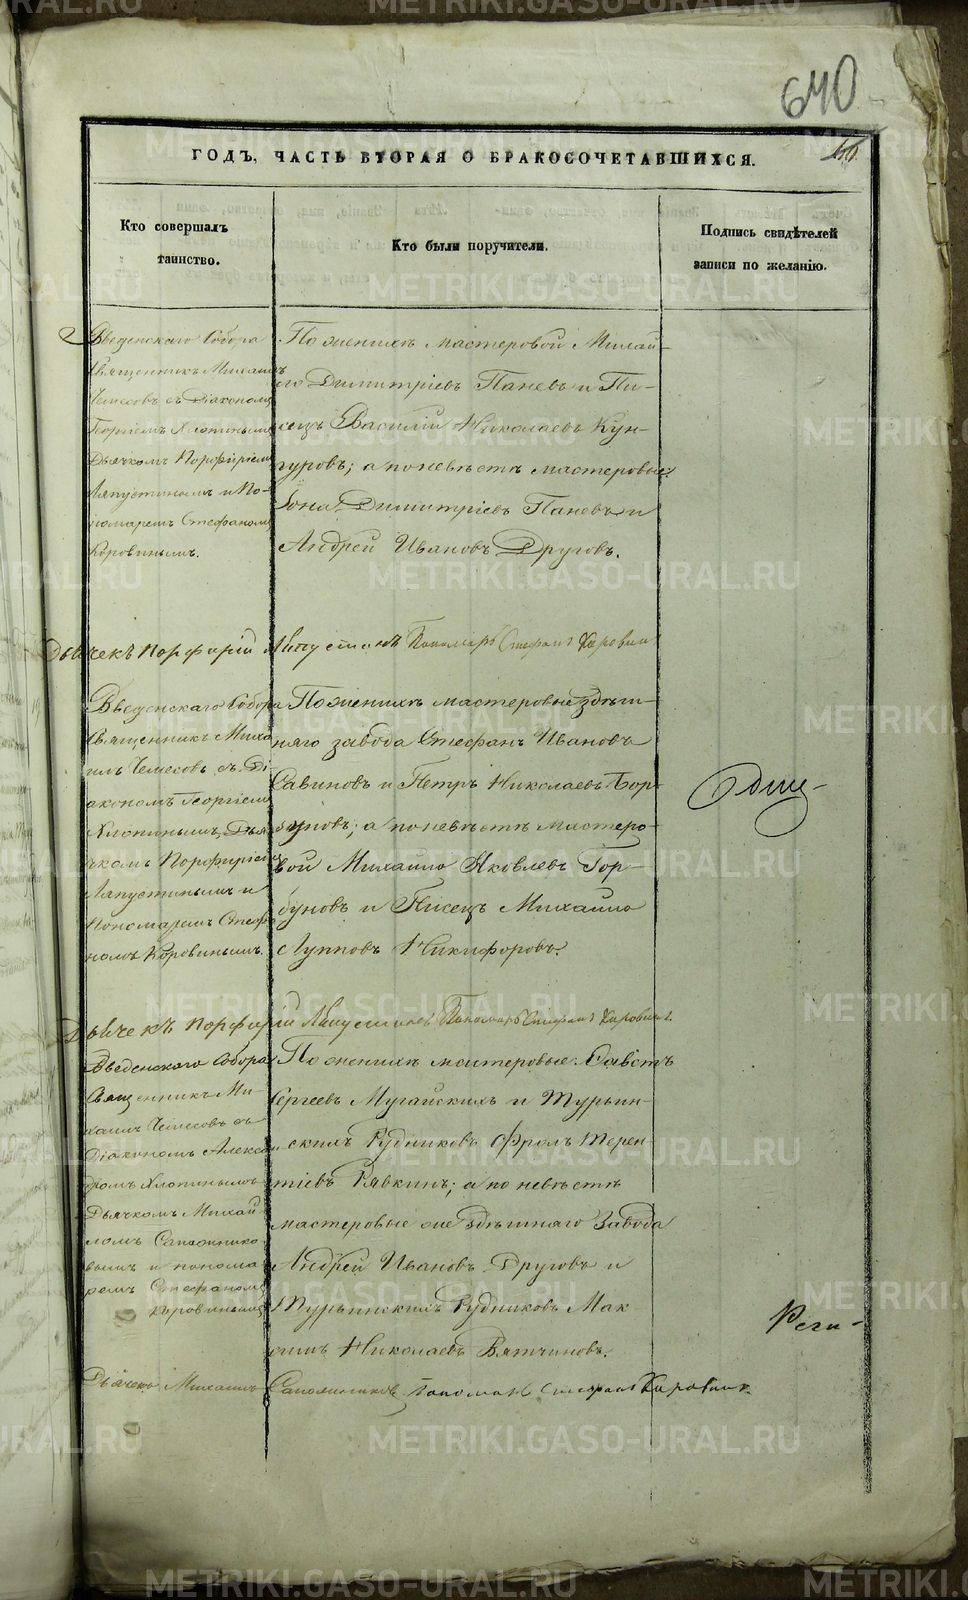 640
60
ГОДЪ, ЧАСТЬ ВТОРАЯ О БРАКОСОЧЕТАВШИХСЯ.
Кто совершалъ
таинство.
Кто были поручители.
Подпись свидѣтелей
записи по желанію.
Введенскаго Собора
Священникъ Михаилъ
Чемесовъ съ Діакономъ
Георгіемъ Хлопинымъ
Дьячкомъ Порфиріемъ
Лапустинымъ и По-
номаремъ Стефаномъ
Коровинымъ.
По женихѣ мастеровой Михай-
ло Димитріевъ Паневъ и Пи-
сецъ Василій Николаевъ Кун-
гуровъ; а по невѣстѣ мастеровые:
Іона Димитріевъ Паневъ и
Андрей Ивановъ Друговъ.
Дьячекъ Порфирій Лапустинъ Пономарь Стефанъ Коровин
Введенскаго Собора
Священникъ Миха
илъ Чемесовъ съ Ді-
акономъ Георгіемъ
Хлопинымъ, Дья
чкомъ Порфиріемъ
Лапустинымъ и
Пономаремъ Стефа
номъ Коровинымъ.
По женихѣ мастеровые здѣш-
няго завода Стефанъ Ивановъ
Савиновъ и Петръ Николаевъ Гор-
буновъ; а по невѣстѣ мастеро-
вой Михайло Яковлевъ Гор-
буновъ и Писецъ Михайло
Лупповъ Никифоровъ.
Дьячекъ Порфирій Лапустинъ Пономарь Стефанъ Коровинъ.
Введенскаго Собора
Священникъ Ми-
хаилъ Чемесовъ съ
Діакономъ Алекса
ндромъ Хлопинымъ
Дьячкомъ Михай
ломъ Сапожнико
вымъ и понома
ремъ Стефаномъ
Коровинымъ
По женихѣ мастеровые: Савстъ
Сергеевъ Мугайскихъ и Турьин-
скихъ Рудниковъ Фролъ Терен
тіевъ Рявкинъ; а по невѣстѣ
мастеровые сие здѣшняго Завода
Андрей Ивановъ Друговъ и
Турьинскихъ Рудниковъ Мак
симъ Николаевъ Вятчиновъ.
Дьячекъ Михаилъ Сапожниковъ Пономарь Стефанъ Коровинъ.
METRIKI.GASO-URAL.RU